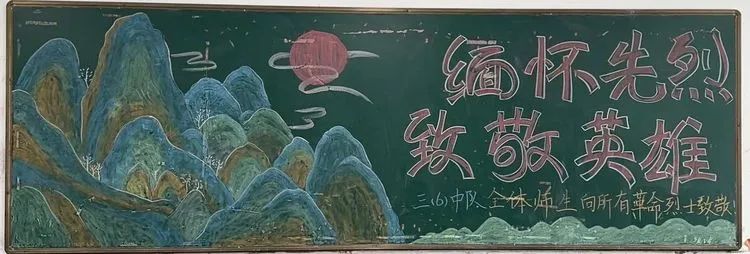 缅怀先烈
致敬英雄
三(6)中队 全体师生 向所有革命烈士致敬